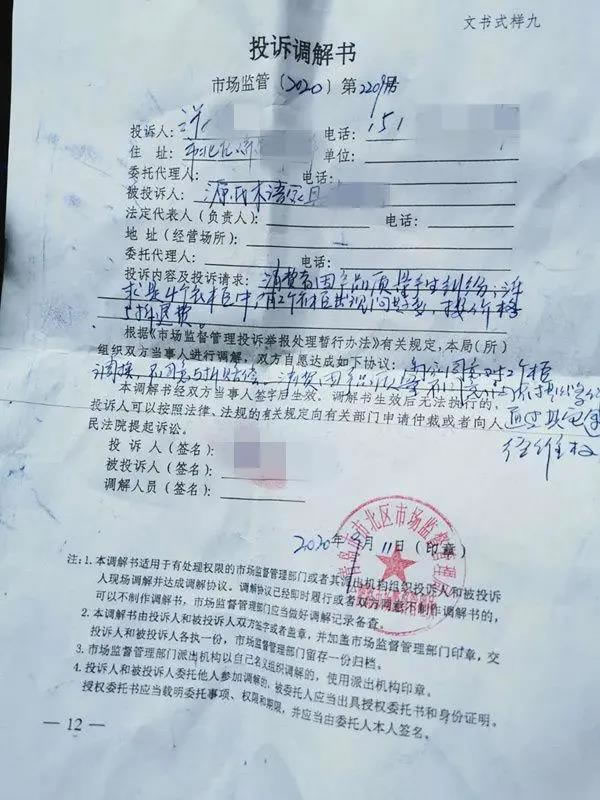 文书式样九
投诉调解书
市场监管（2020）第2209号
投诉人： 电话：151
住 址：市北区 单位：
委托代理人： 电话：
被投诉人：源氏木语家具
法定代表人（负责人）： 电话：
地 址（经营场所）：
委托代理人： 电话：
投诉内容及投诉请求：消费者因产品质量产生纠纷，诉
求是4个衣柜中有2个衣柜出现问题，按价格
折退费。
根据《市场监督管理投诉举报处理暂行办法》有关规定，本局（所）
组织双方当事人进行调解，双方自愿达成如下协议：同意对2个柜
调换，不同意
本调解书经双方当事人签字后生效。调解书生效后无法执行的，
投诉人可以按照法律、法规的有关规定向有关部门申请仲裁或者向人
民法院提起诉讼。
径维权
投 诉 人（签名）：
被投诉人（签名）：
调解人员（签名）：
市北区市场监督管理
2020年9月11日（印章）
注：1. 本调解书适用于有处理权限的市场监督管理部门或者其派出机构组织投诉人和被投诉
人现场调解并达成调解协议。调解协议已经即时履行或者双方同意不制作调解书的，
可以不制作调解书，市场监督管理部门应当做好调解记录备查。
2. 本调解书由投诉人和被投诉人双方签字或者盖章，并加盖市场监督管理部门印章，交
投诉人和被投诉人各执一份，市场监督管理部门留存一份归档。
3. 市场监督管理部门派出机构以自己名义组织调解的，使用派出机构印章。
4. 投诉人和被投诉人委托他人参加调解的，被委托人应当出具授权委托书和身份证明。
授权委托书应当载明委托事项、权限和期限，并应当由委托人本人签名。
— 12 —